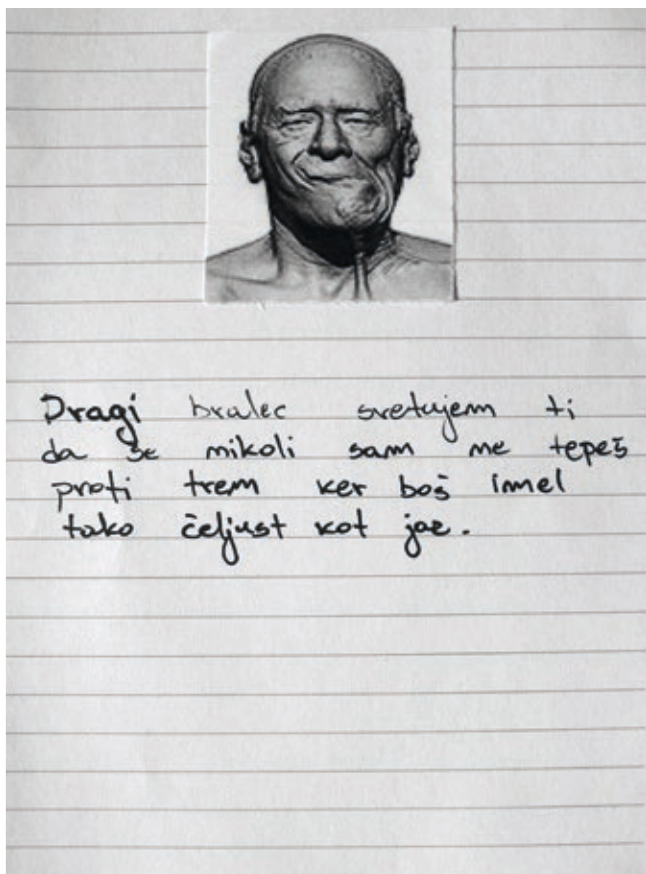 Dragi bralec svetujem ti
da se nikoli sam ne tepeš
proti trem ker boš imel
tako čeljust kot jaz.